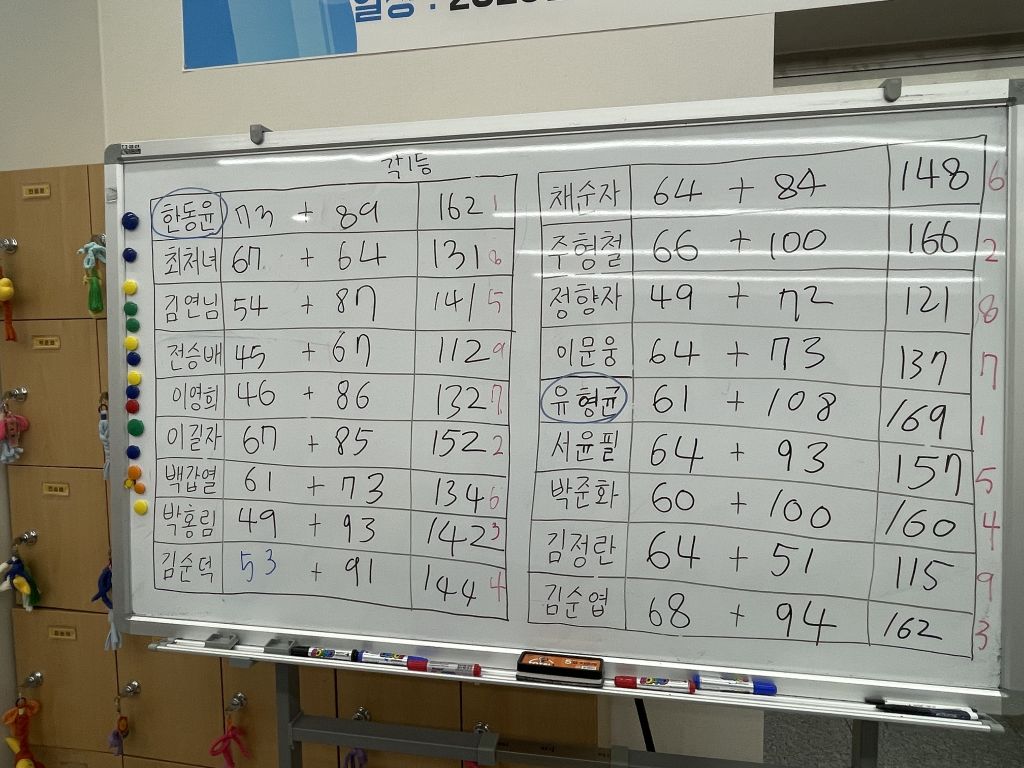 각1등
한동윤 73 + 89 162 1
최처녀 67 + 64 131 8
김연님 54 + 87 141 5
전승배 45 + 67 112 9
이영희 46 + 86 132 7
이길자 67 + 85 152 2
백갑열 61 + 73 134 6
박홍림 49 + 93 142 3
김순덕 53 + 91 144 4
채순자 64 + 84 148 6
주형철 66 + 100 166 2
정향자 49 + 72 121 8
이문웅 64 + 73 137 7
유형균 61 + 108 169 1
서윤필 64 + 93 157 5
박준화 60 + 100 160 4
김정란 64 + 51 115 9
김순엽 68 + 94 162 3